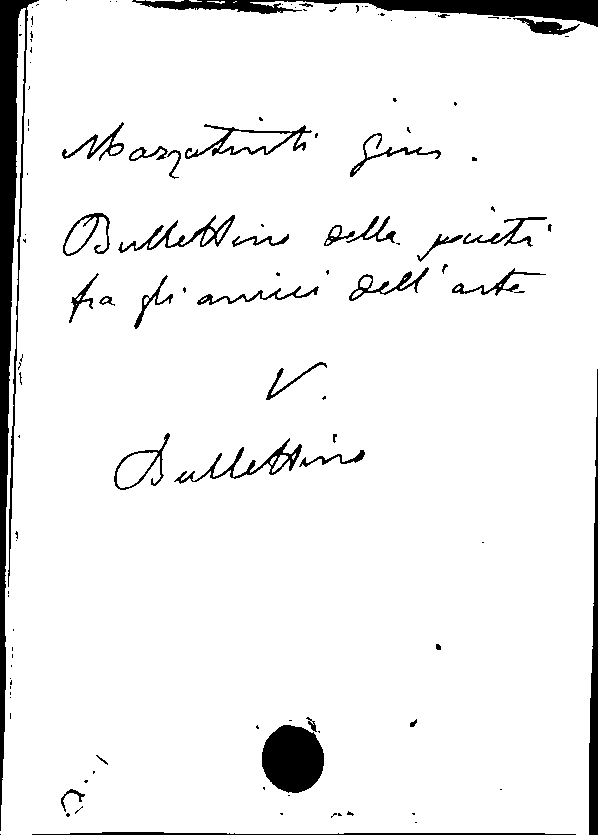 Mazzatinti Gius.
Bullettino della società
fra gli amici dell'arte
V.
Bullettino